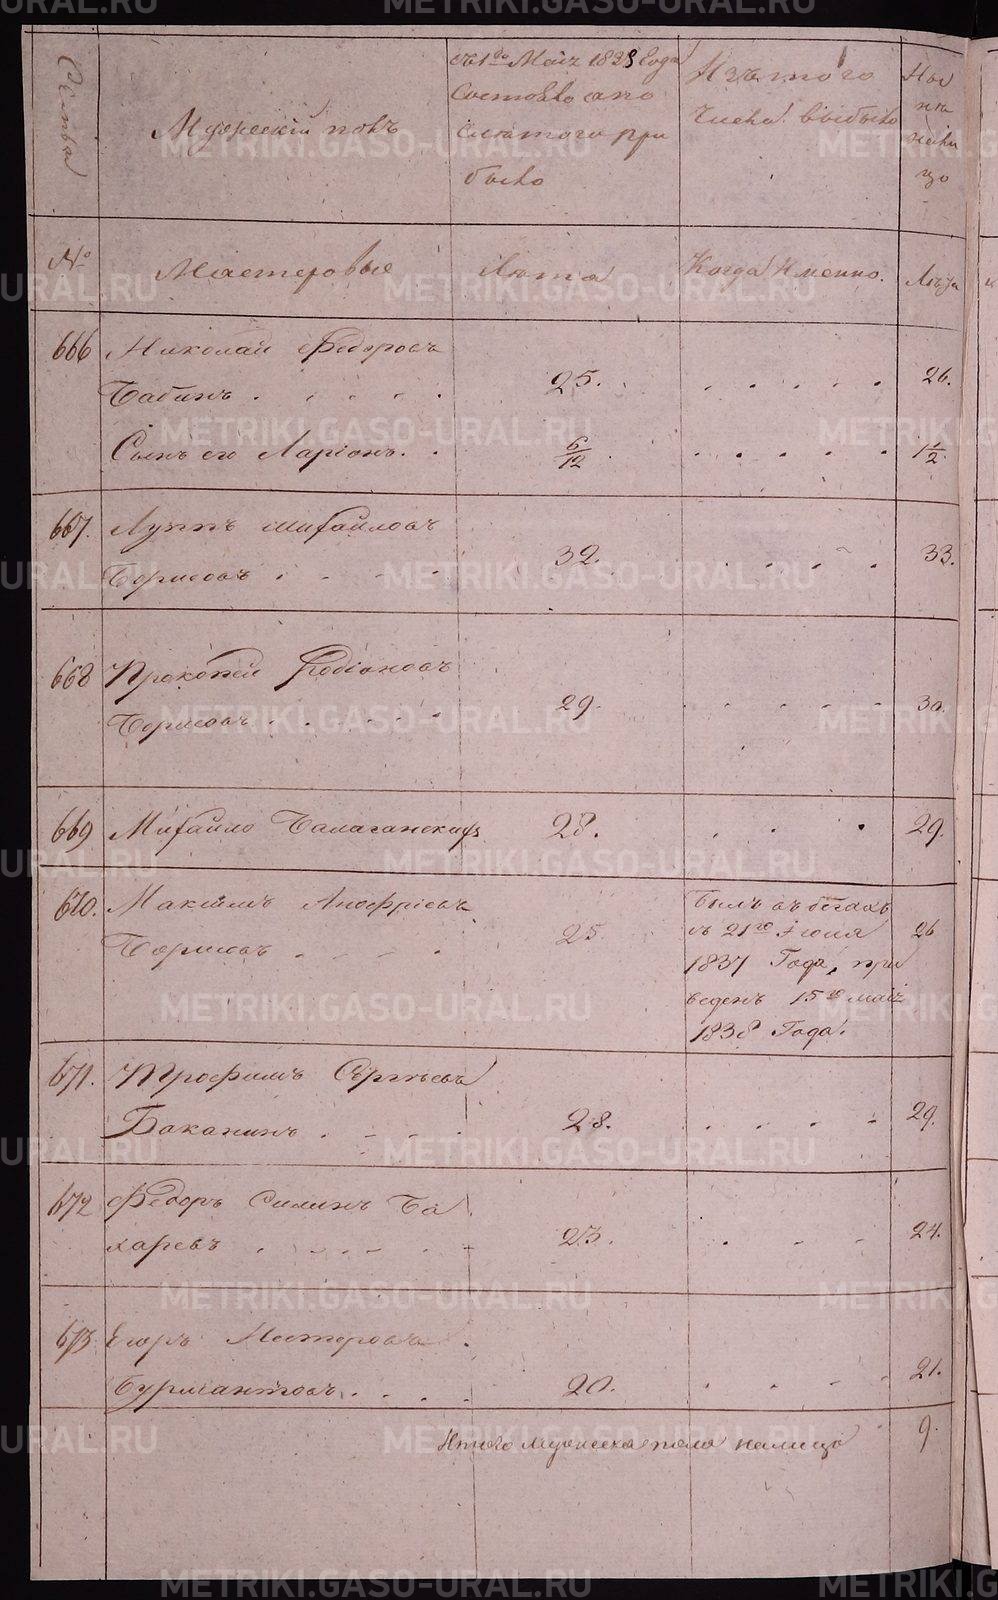 Семьи
Мужескій полъ
съ 1го Маія 1838 Года
Состояло а по
слѣ того при
было
Изъ того
Числа выбыло
Ны
нѣ
на ли
цо
№
Мастеровые
Лѣта
Когда Именно.
Лѣта
666 Николай Федоровъ
Бабинъ . . . . . 25. . . . . . 26.
Сынъ его Ларіонъ. . 6/12 . . . . . 1 1/2.
667. Луппъ Михайловъ
Борисовъ . . . . 32. . . . . 33.
668 Прокопей Родіоновъ
Борисовъ . . . . . 29. . . . . . 30.
669 Михайло Балаганскихъ 28. . . . 29.
670. Максимъ Анофріевъ
Борисовъ . . . . 25 26
Былъ въ бегахъ
съ 21го Іюня
1837 Года, при
веденъ 15го маія
1838 Года.
671. Трофимъ Сергѣевъ
Баканинъ . . . . 28. . . . . 29.
672 Федоръ Силинъ Ба
харевъ . . . . . 23. . . . 24.
673 Егоръ Несторовъ .
Бурмантовъ . . . . 20. . . . . 21.
Итого мужеска пола налицо 9.
METRIKI.GASO-URAL.RU